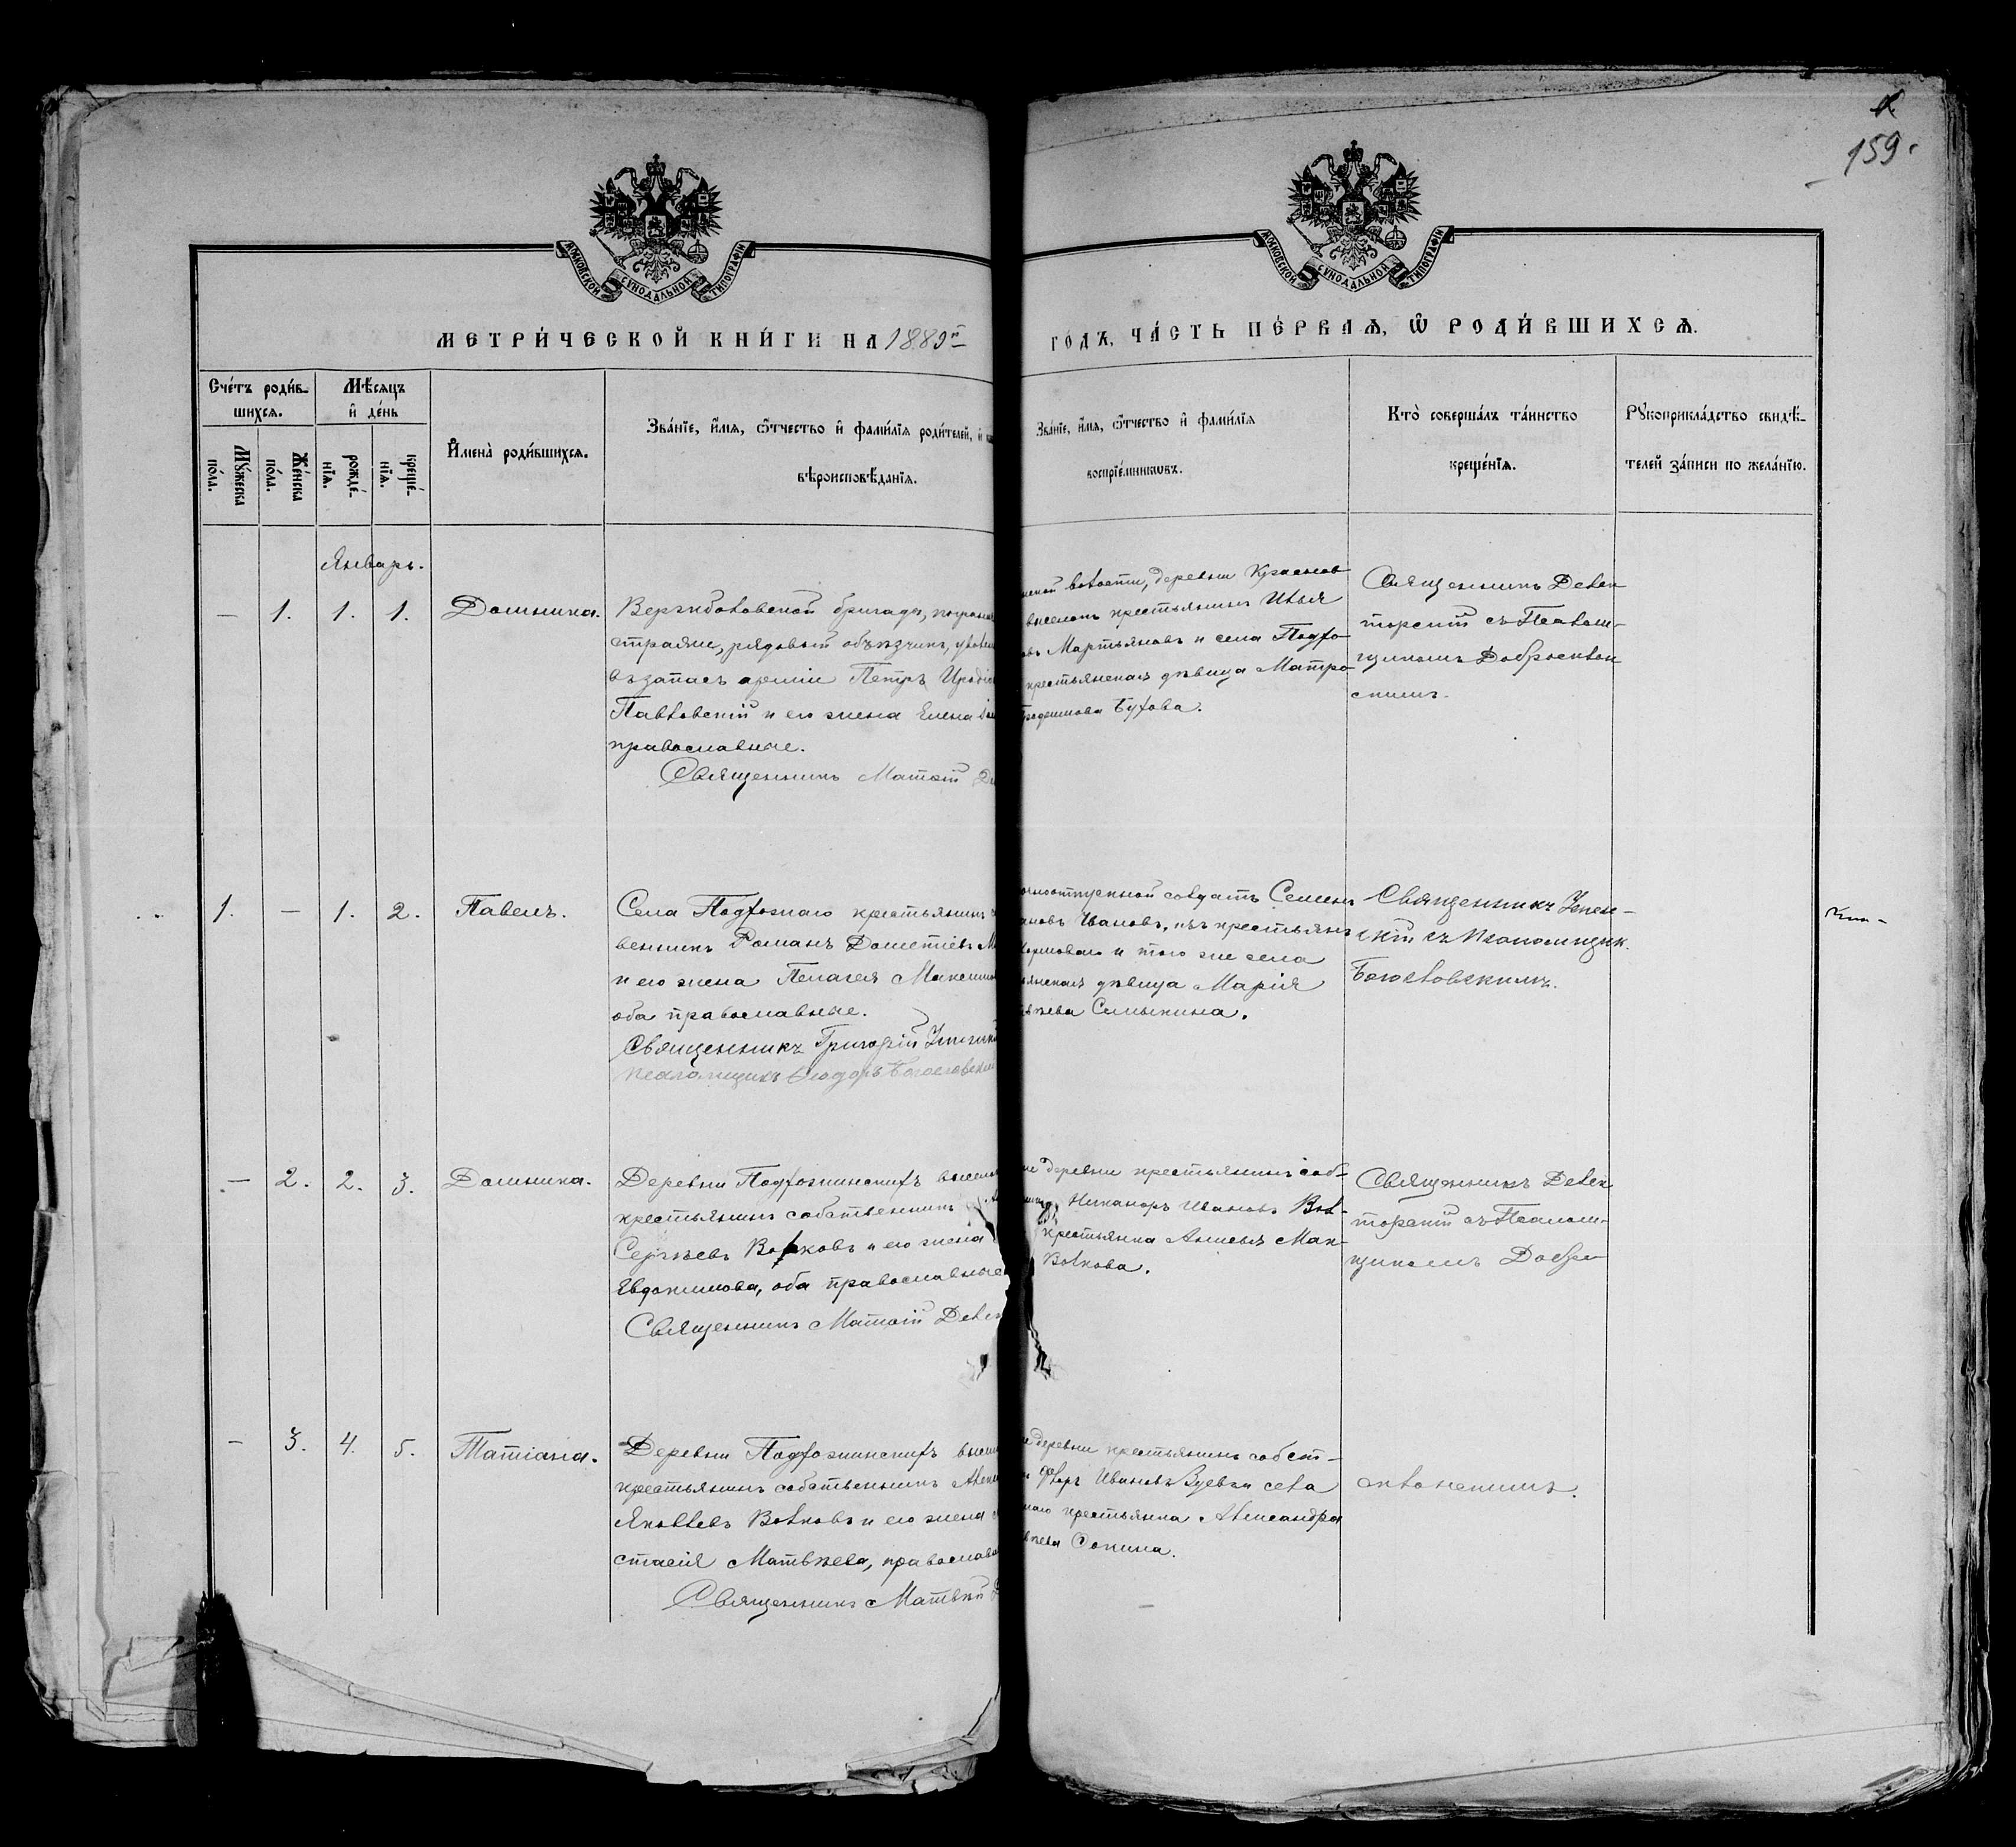 159.
МОСКОВСКОЙ СУНОДАЛЬНОЙ ТИПОГРАФІИ
МОСКОВСКОЙ СУНОДАЛЬНОЙ ТИПОГРАФІИ
МЕТРИ́ЧЕСКОЙ КНИ́ГИ НА 1889й
ГОДЪ, ЧА́СТЬ ПЕ́РВАѦ, Ѽ РОДИ́ВШИХСѦ.
Сче́тъ роди́в-
шихсѧ.
Мѣ́сѧцъ
и де́нь
Мꙋ́жеска
по́ла.
Же́нска
по́ла.
рожде́-
нїѧ.
креще́-
нїѧ.
Имена̀ роди́вшихсѧ.
Зва́нїе, и́мѧ, ѻ́тчество и фами́лїѧ роди́телей, и
вѣроисповѣ́данїѧ.
Зва́нїе, и́мѧ, ѻ́тчество и фами́лїѧ
воспрїе́мникѡвъ.
Кто̀ соверша́лъ та́инство
креще́нїѧ.
Рꙋкоприкла́дство свидѣ́-
телей за́писи по жела́нїю.
Январь.
— 1. 1. 1. Домника.
Вержболовской бригады,
стражи, рядовый объѣздчикъ,
въ запасъ арміи Петръ
Павловскій и его жена Елена
православные.
Священникъ Матвій
волости, деревни
выселокъ крестьянинъ Илья
Мартьяновъ и села
крестьянская дѣвица
Бухова.
Священникъ Делек-
торскій съ Псалом-
щикомъ Добросклон-
скимъ.
1. — 1. 2. Павелъ.
Села крестьянинъ
венникъ Романъ Дометіевъ
и его жена Пелагея
оба православные.
Священникъ Григорій
Псаломщикъ Ѳеодоръ Богословскій
солдатъ Семенъ
Ивановъ, изъ крестьянъ
и того же села
дѣвица Марія
Семыкина.
Священникъ Успен-
скій съ Псаломщик.
Богословскимъ.
— 2. 2. 3. Домника.
Деревни
крестьянинъ собственникъ
Сергѣевъ Волковъ и его жена
Евдокимова, оба православные
Священникъ Матвій
деревни крестьянинъ соб-
Никаноръ Ивановъ Вол-
крестьянка Анисья Мак-
Волкова.
Священникъ Делек-
торскій съ Псалом-
щикомъ Добро-
— 3. 4. 5. Татіана.
Деревни
крестьянинъ собственникъ
Яковлевъ Волковъ и его жена
стасія Матвѣева,
Священникъ Матвѣй
деревни крестьянинъ собст-
Ивановъ села
крестьянка Александра
Сопина.
склонскимъ.